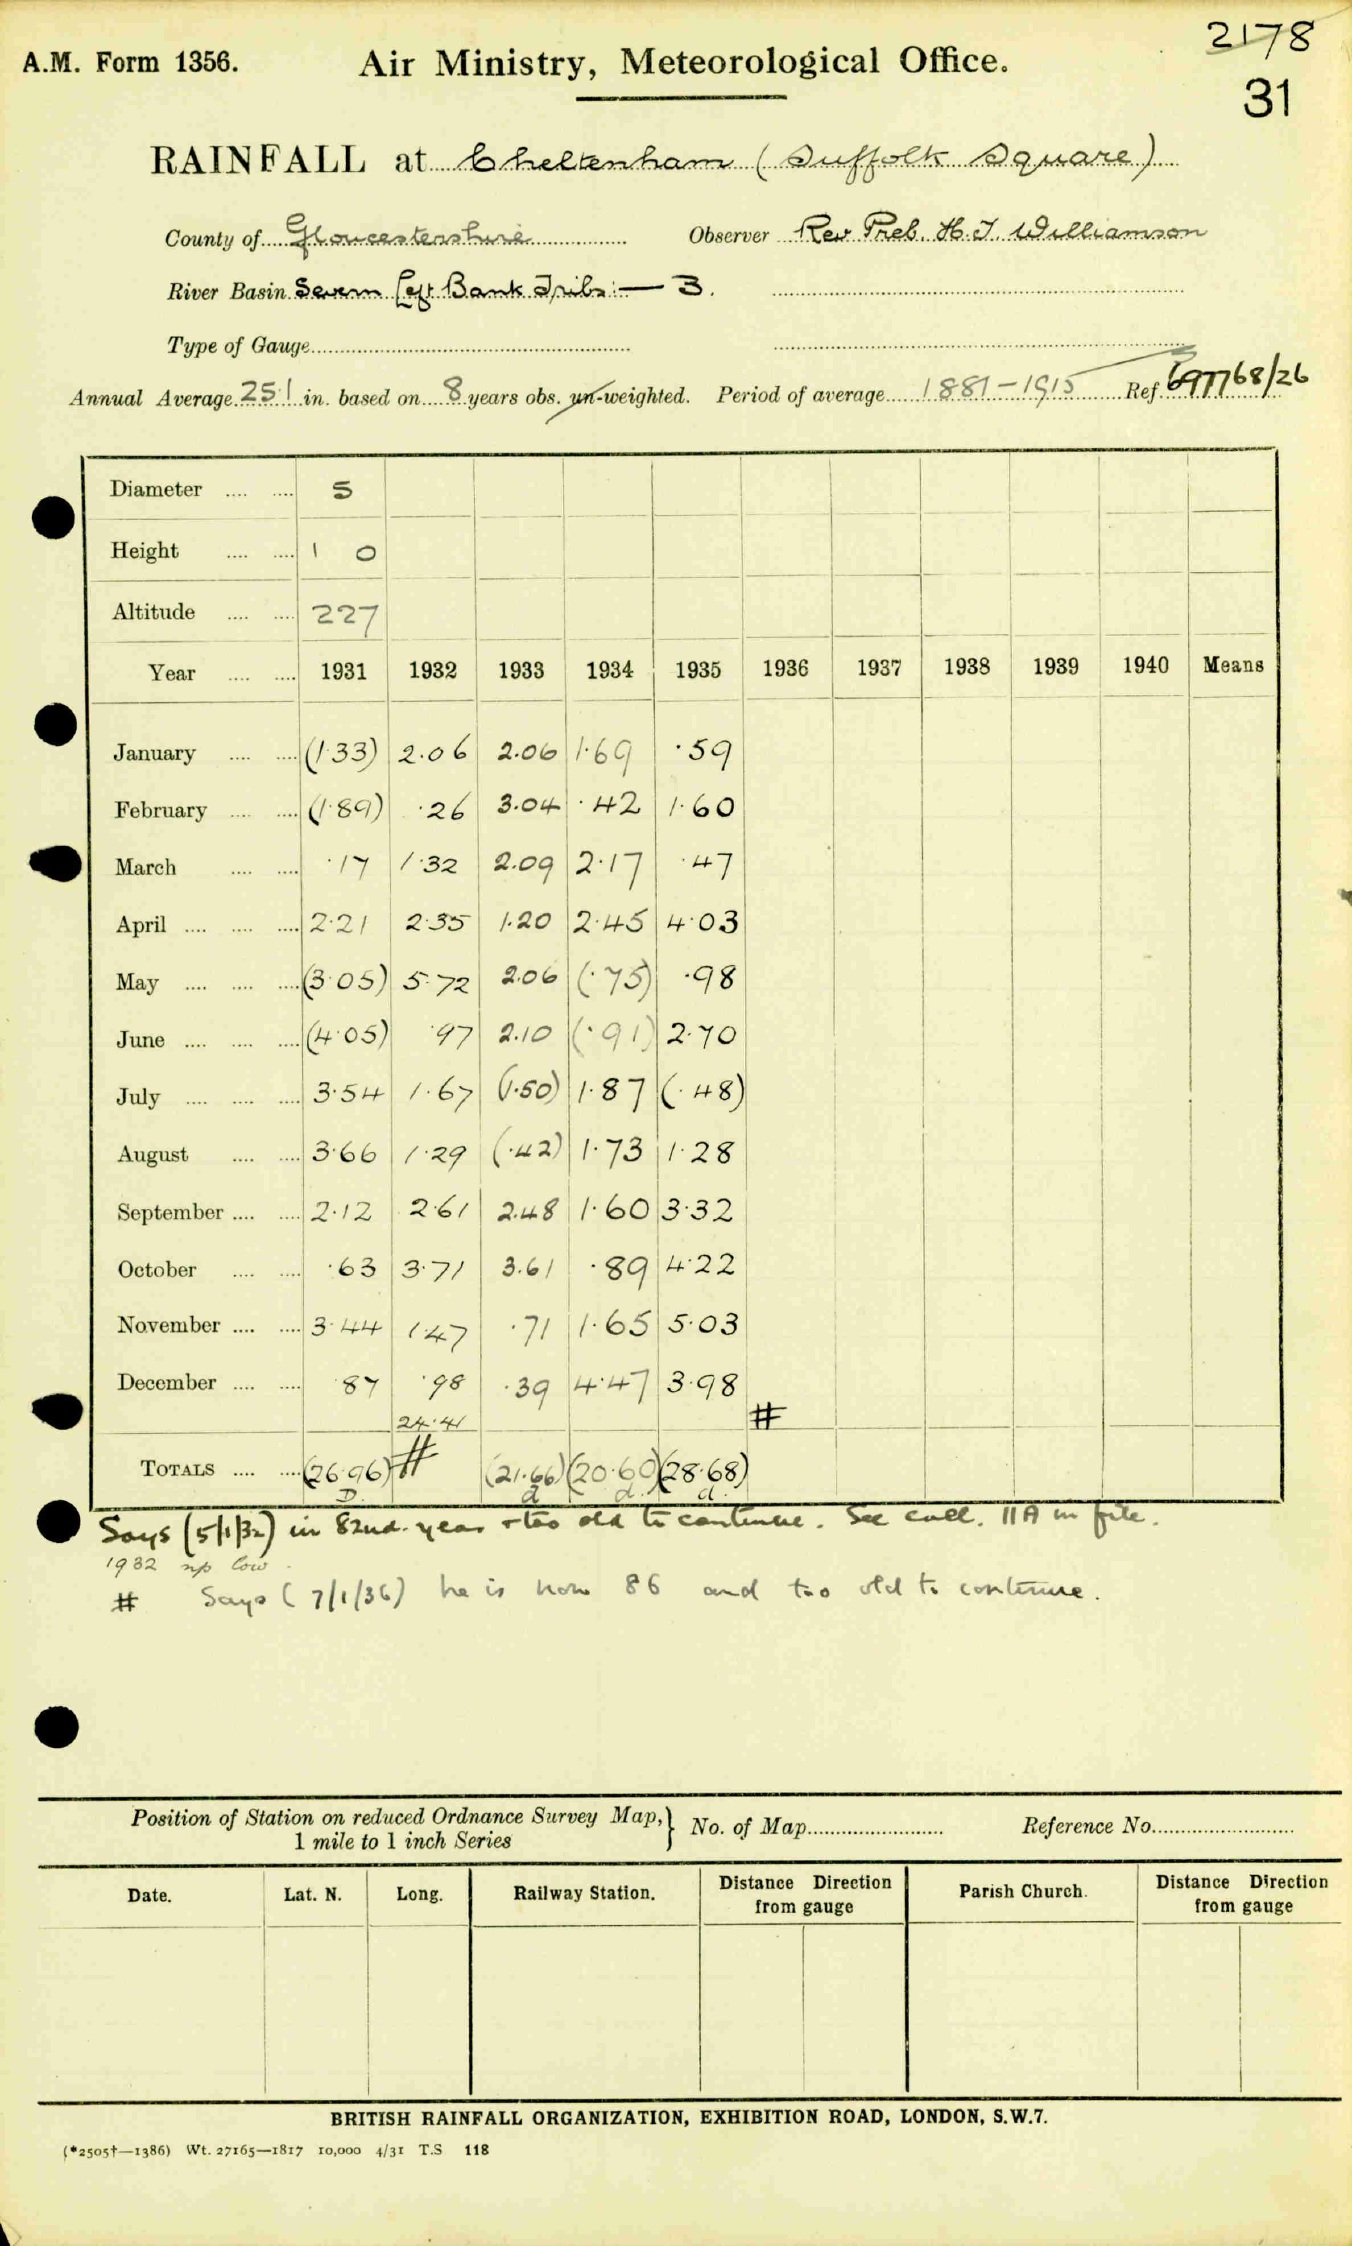 2178
A.M. Form 1356. Air Ministry, Meteorological Office.
31
RAINFALL at Cheltenham (Suffolk Square)
County of Gloucestershire Observer Rev Preb. H. J. Williamson
River Basin Severn Left Bank Tribs:— 3.
Type of Gauge
Annual Average 25·1 in. based on 8 years obs. un-weighted. Period of average 1881–1915 Ref. 68/26
Diameter .... .... 5
Height .... .... 1 0
Altitude .... .... 227
Year .... .... 1931 1932 1933 1934 1935 1936 1937 1938 1939 1940 Means
January .... .... (1·33) 2·06 2·06 1·69 ·59
February .... .... (1·89) ·26 3·04 ·42 1·60
March .... .... ·17 1·32 2·09 2·17 ·47
April .... .... .... 2·21 2·35 1·20 2·45 4·03
May .... .... .... (3·05) 5·72 2·06 (·75) ·98
June .... .... .... (4·05) ·97 2·10 (·91) 2·70
July .... .... .... 3·54 1·67 (1·50) 1·87 (·48)
August .... .... 3·66 1·29 (·42) 1·73 1·28
September .... .... 2·12 2·61 2·48 1·60 3·32
October .... .... ·63 3·71 3·61 ·89 4·22
November .... .... 3·44 1·47 ·71 1·65 5·03
December .... .... ·87 ·98 ·39 4·47 3·98
24·41 #
TOTALS .... .... (26·96) # (21·66) (20·60) (28·68)
D. d d. d.
Says (5/1/32) in 82nd. year & too old to continue. See corr. 11A in file.
1932 low
# Says (7/1/36) he is now 86 and too old to continue.
Position of Station on reduced Ordnance Survey Map,} No. of Map Reference No.
1 mile to 1 inch Series
Date. Lat. N. Long. Railway Station. Distance from gauge Direction Parish Church. Distance from gauge Direction
BRITISH RAINFALL ORGANIZATION, EXHIBITION ROAD, LONDON, S.W.7.
(*2505†—1386) Wt. 27165—1817 10,000 4/31 T.S 118